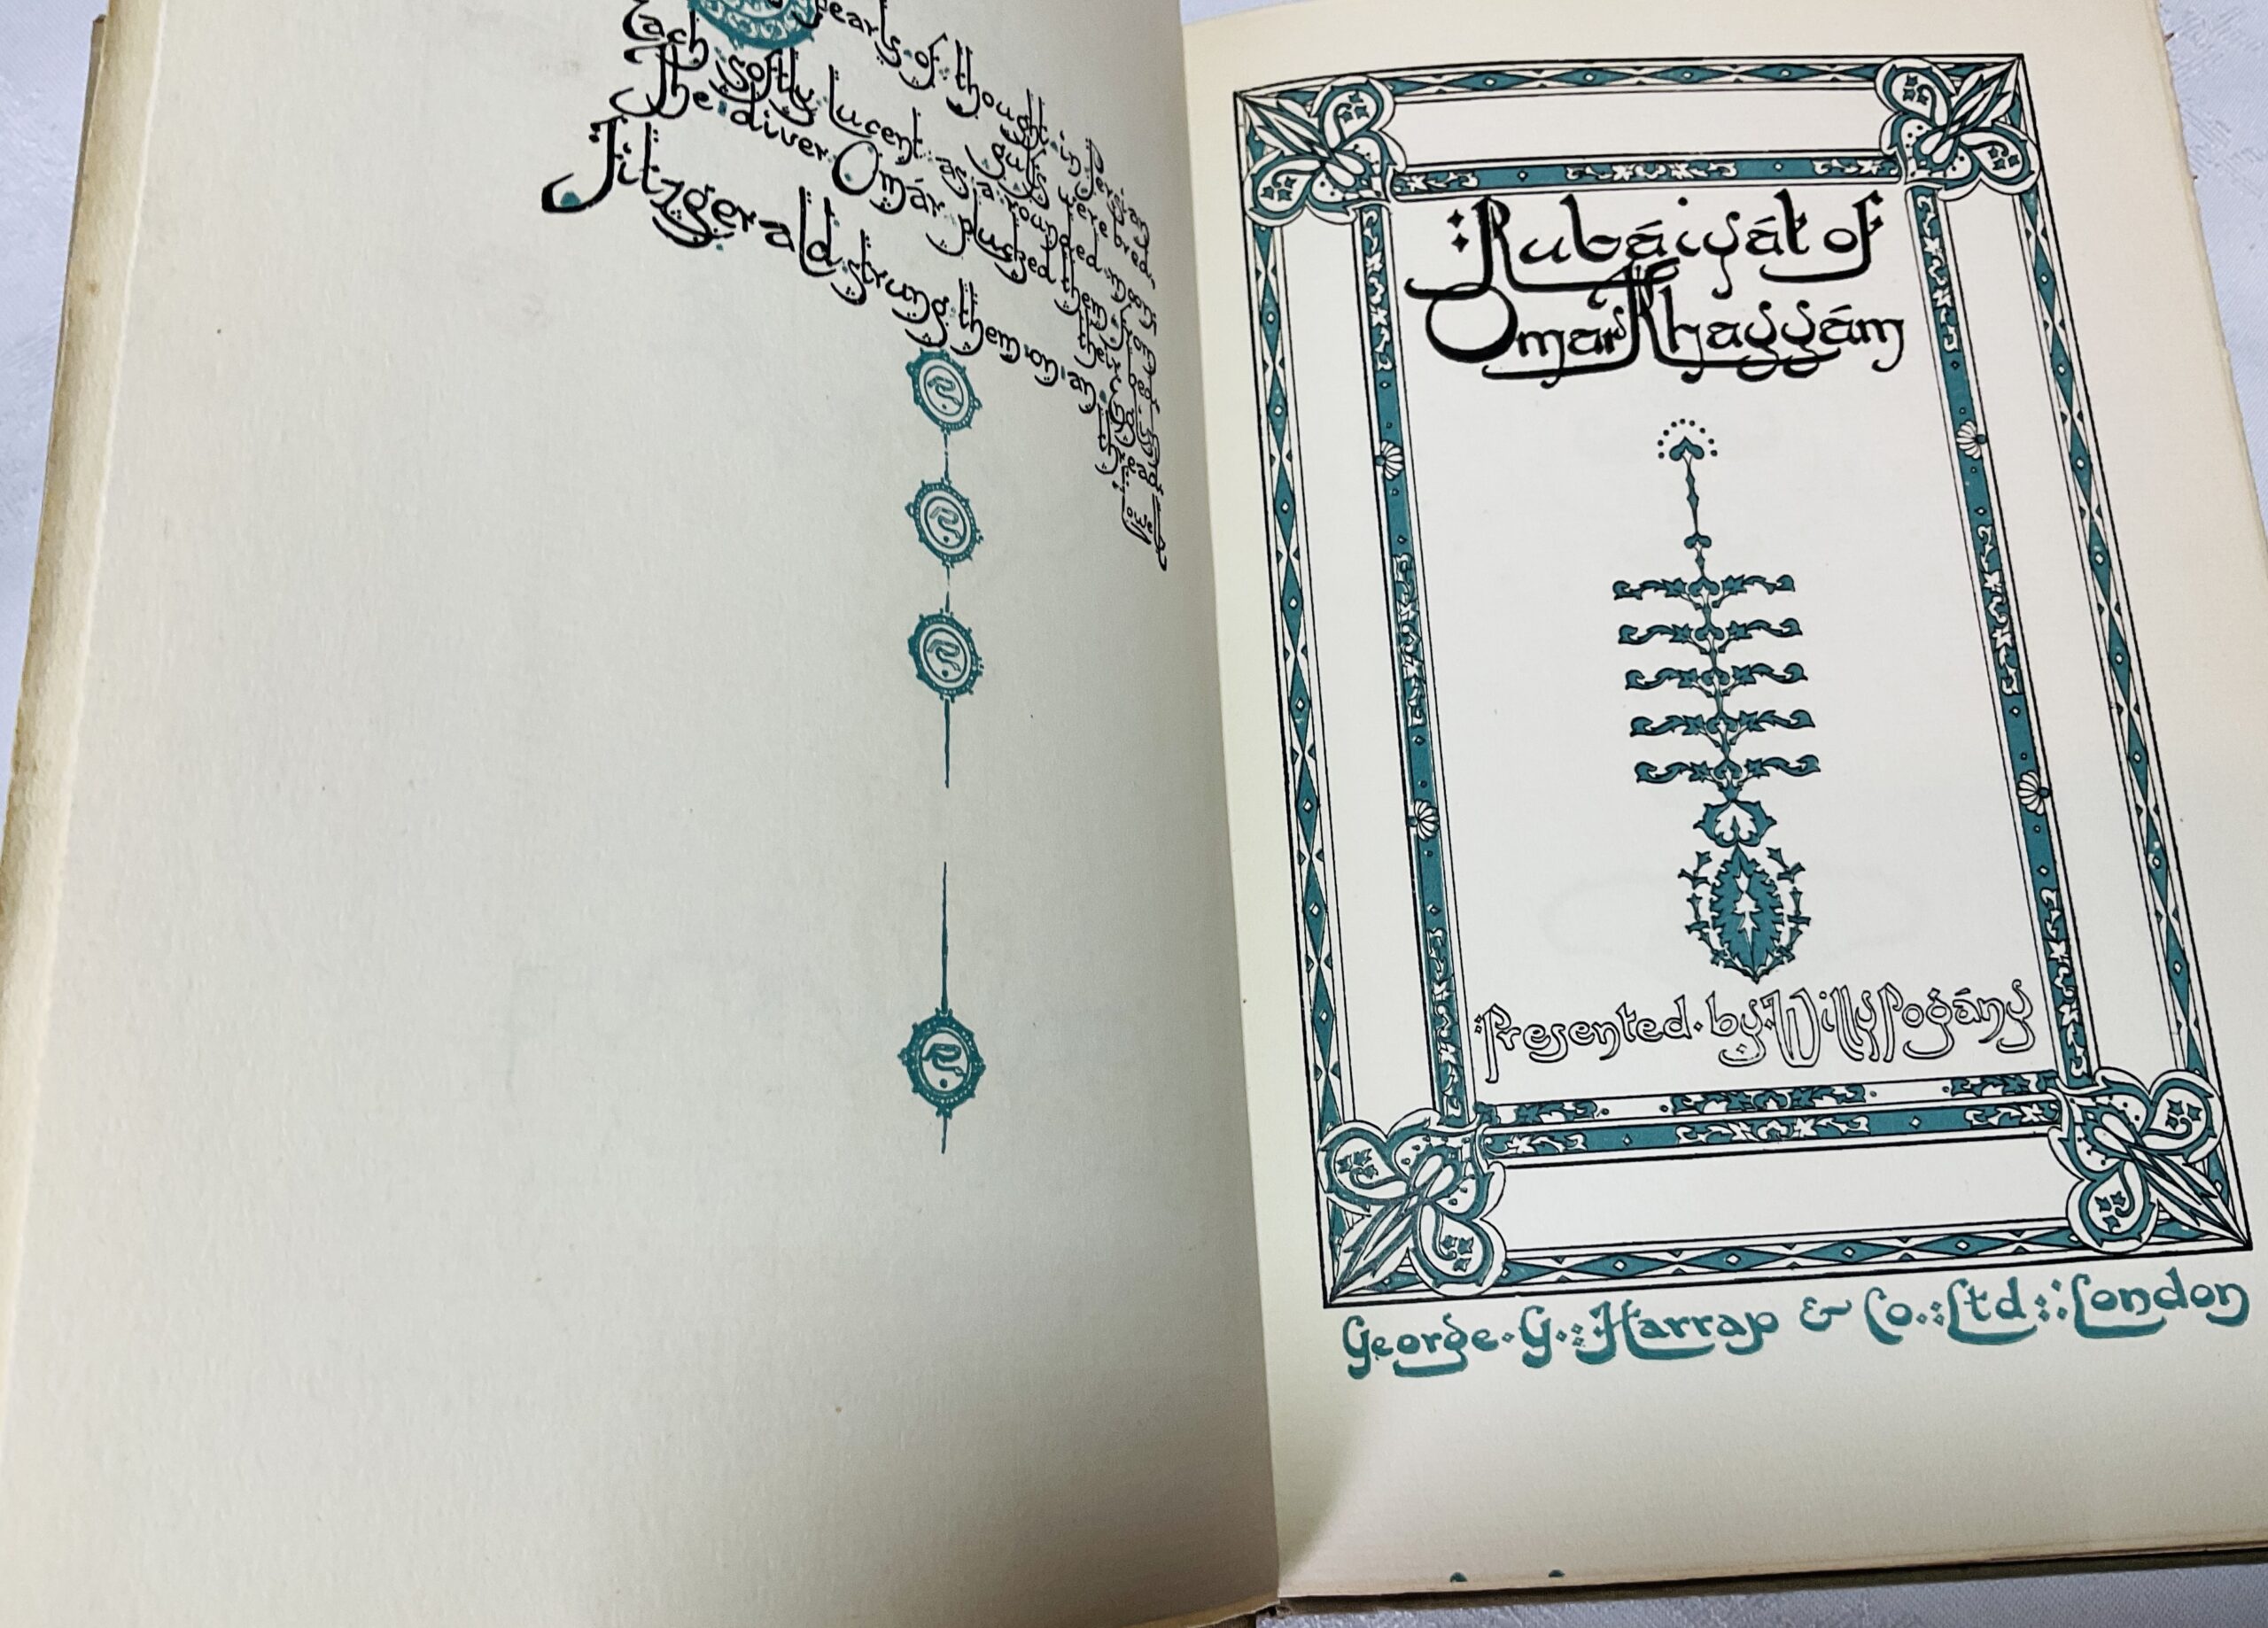 pearls of thought in Persian
gulfs were bred
Each softly lucent as a rounded moon
The diver Omár plucked them from their bed
Fitzger-ald strung them on an
Rubáiyát of
Omar Khayyám
Presented·by·Willy Pogány
George·G·:Harrap & Co.:Ltd:London